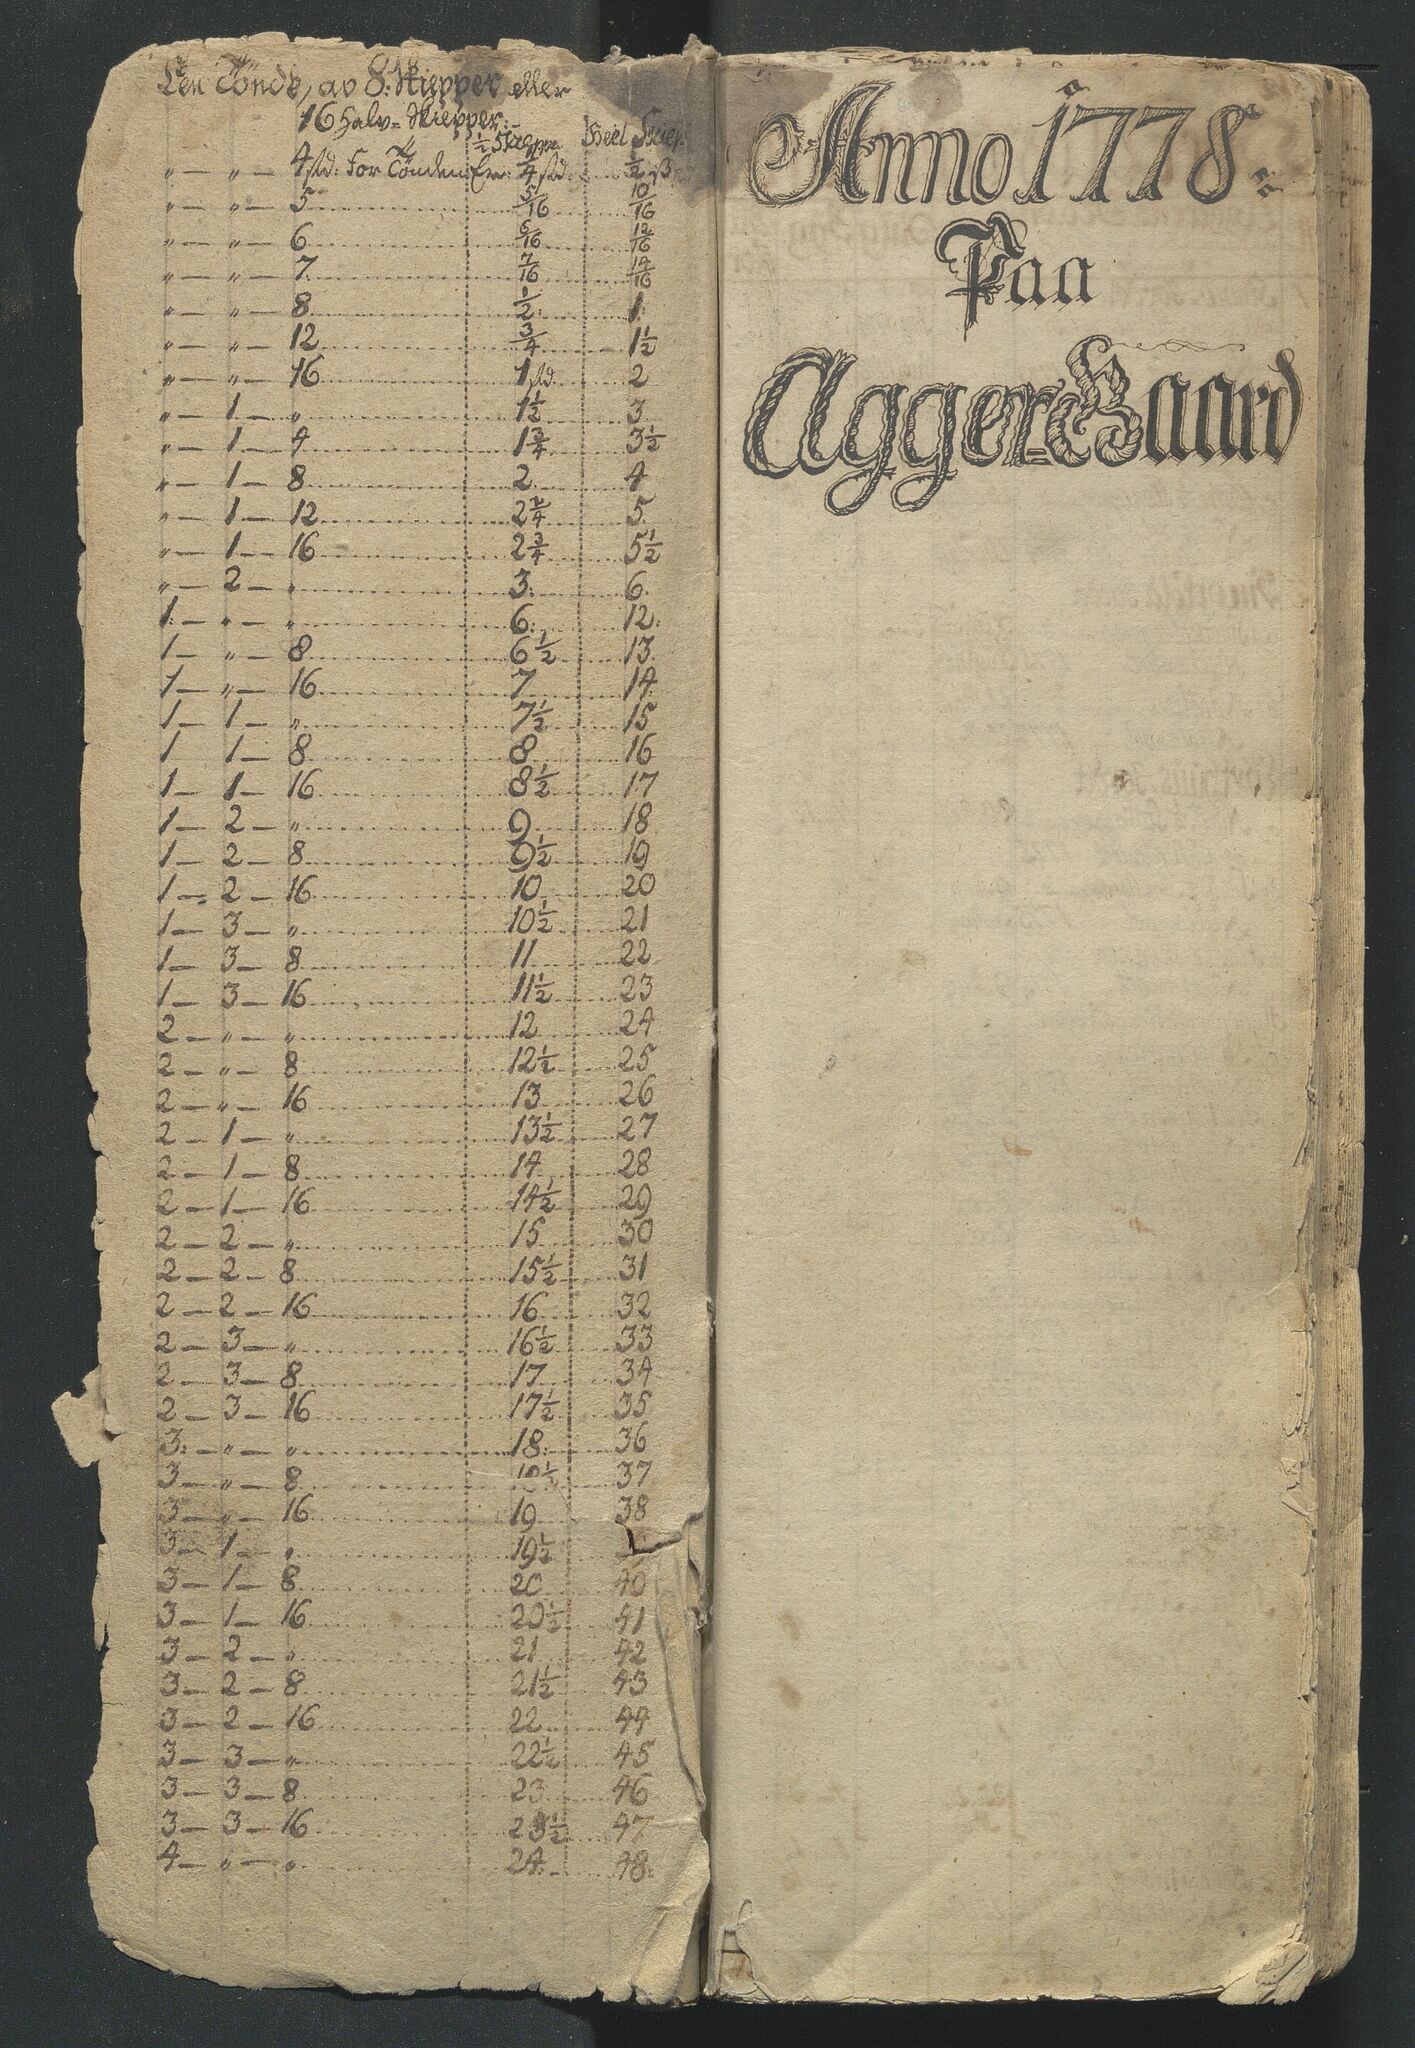 Een Tönde, av 8. Skiepper eller
16 Halv= Skiepper.
½ Skeppe Heel Skiep.
„ — „ — 4 sld: For Tönden Er: ¼ sld. ½ ß
„ — „ — 5 5/16 10/16
„ — „ — 6 6/16 12/16
„ — „ — 7. 7/16 14/16
„ — „ — 8 ½. 1.
„ — „ — 12 ¾ 1½
„ — „ — 16 1 sld. 2
„ — 1 — „ 1½ 3
„ — 1 — 4 1¾ 3½
„ — 1 — 8 2. 4
„ — 1 — 12 2 2/4 5.
„ — 1 — 16 2¾ 5½
„ — 2 — „ 3. 6.
1. „ — „ 6. 12.
1 — „ — 8 6½ 13
1 — „ — 16 7 14.
1 — 1 — „ 7½ 15
1 1 — 8 8 16
1 — 1 — 16 8½ 17
1 — 2 — „ 9 18
1 — 2 — 8 9½ 19
1 — 2 — 16 10 20
1 — 3 — „ 10½ 21
1 — 3 — 8 11 22
1 — 3 — 16 11½ 23
2 — „ — „ 12 24
2 — „ — 8 12½ 25
2 — „ — 16 13 26
2 — 1 — „ 13½ 27
2 — 1 — 8 14 28
2 — 1 — 16 14½ 29
2 — 2 — „ 15 30
2 — 2 — 8 15½ 31
2 — 2 — 16 16 32
2 — 3 — „ 16½ 33
2 — 3 — 8 17 34
2 — 3 — 16 17½ 35
3. — „ — „ 18. 36
3 — „ — 8 18½ 37
3 — „ — 16 19 38
3 — 1 — „ 19½
3 — 1 — 8 20 40
3 — 1 — 16 20½ 41
3 — 2 — „ 21 42
3 — 2 — 8 21½ 43
3 — 2 — 16 22 44
3 — 3 — „ 22½ 45
3 — 3 — 8 23 46
3 — 3 — 16 23½ 47
4 — „ — „ 24. 48.
Anno 1778:
Paa
Agger=Gaard